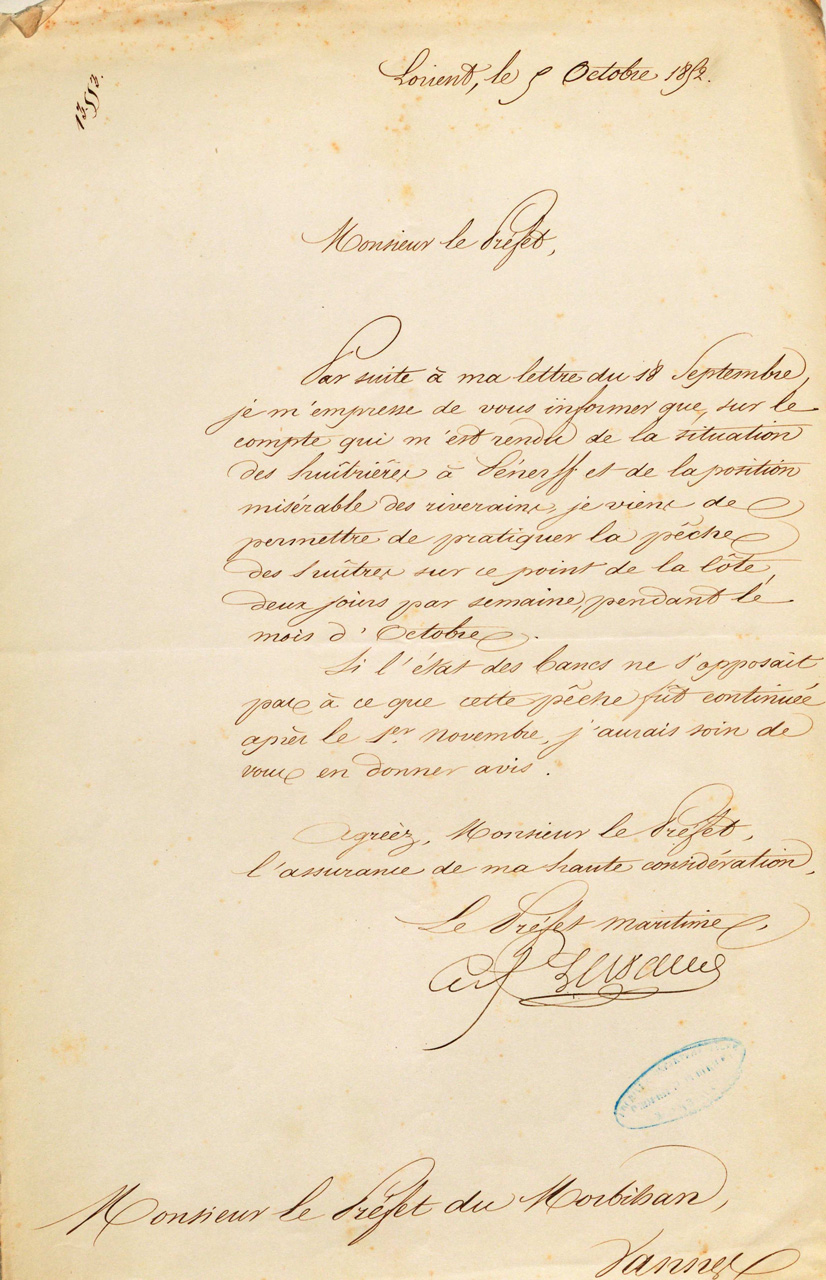 1353.
Lorient, le 5 Octobre 1852.
Monsieur le Préfet,
Par suite à ma lettre du 18 Septembre,
je m'empresse de vous informer que, sur le
compte qui m'est rendu de la situation
des huîtrières à Pénerff et de la position
misérable des riverains, je viens de
permettre de pratiquer la pêche
des huîtres sur ce point de la Côte,
deux jours par semaine, pendant le
mois d'Octobre.
Si l'état des bancs ne s'opposait
pas à ce que cette pêche fût continuée
après le 1er novembre, j'aurais soin de
vous en donner avis.
Agréez, Monsieur le Préfet,
l'assurance de ma haute considération,
Le Préfet maritime,
Monsieur le Préfet du Morbihan,
Vannes